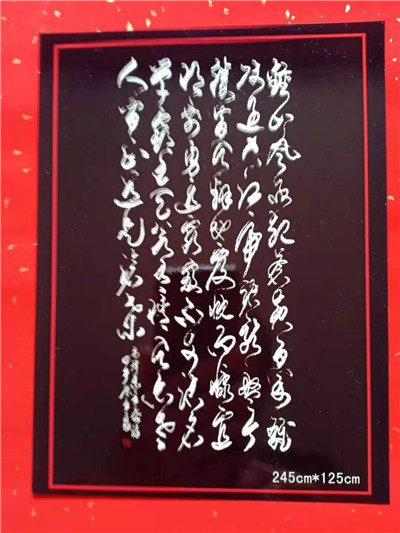 鍾山風雨起蒼黃百萬雄
師過大江虎踞龍盤今
勝昔天翻地覆慨而慷宜
將剩勇追窮寇不可沽名
學霸王天若有情天亦老
人間正道是滄桑
245cm*125cm